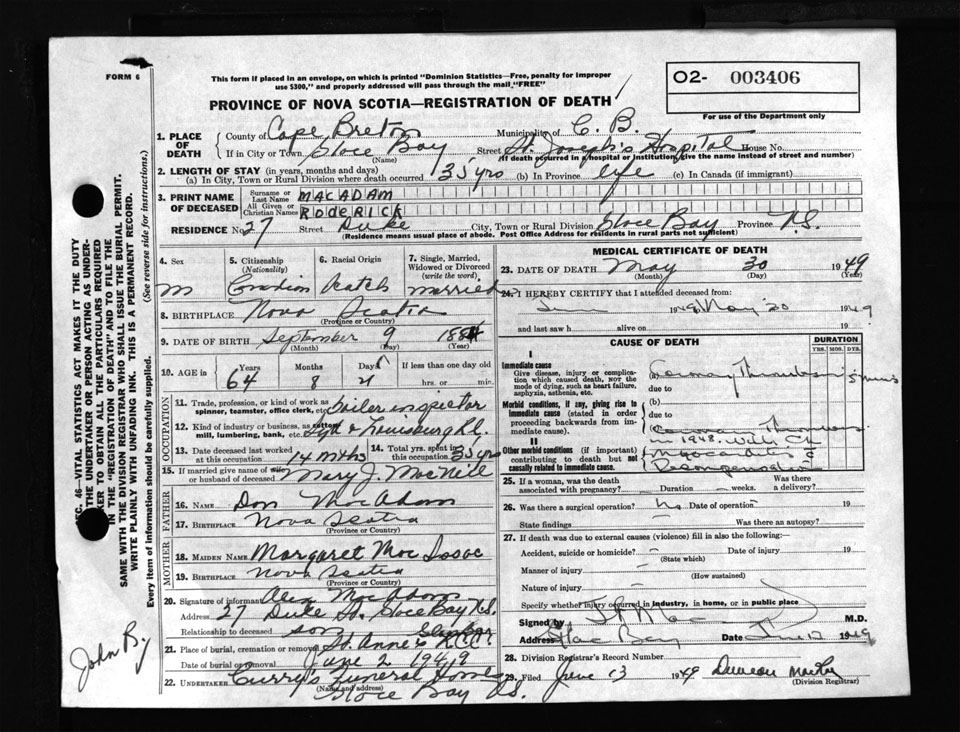 FORM 6
This form if placed in an envelope, on which is printed "Dominion Statistics—Free, penalty for improper
use $300," and properly addressed will pass through the mail "FREE"
O2- 003406
For use of the Department only
PROVINCE OF NOVA SCOTIA—REGISTRATION OF DEATH
1. PLACE OF DEATH County of Cape Breton Municipality of C. B.
If in City or Town Glace Bay (Name) Street St. Joseph's Hospital House No.
(If death occurred in hospital or institution, give the name instead of street and number)
2. LENGTH OF STAY (in years, months and days)
(a) In City, Town or Rural Division where death occurred 35 yrs (b) In Province life (c) In Canada (if immigrant)
3. PRINT NAME OF DECEASED Surname or Last Name MACADAM
All Given or Christian Names RODERICK
RESIDENCE No. 27 Street Duke City, Town or Rural Division Glace Bay Province N.S.
(Residence means usual place of abode. Post Office Address for residents in rural parts not sufficient)
4. Sex m
5. Citizenship (Nationality) Canadian
6. Racial Origin Scotch
7. Single, Married, Widowed or Divorced (write the word) married
8. BIRTHPLACE Nova Scotia
(Province or Country)
9. DATE OF BIRTH September 9 1884
(Month) (Day) (Year)
10. AGE in Years 64 Months 8 Days 21 If less than one day old hrs. or min.
OCCUPATION
11. Trade, profession, or kind of work as spinner, teamster, office clerk, etc. boiler inspector
12. Kind of industry or business, as cotton mill, lumbering, bank, etc. Syd & Louisburg Rl.
13. Date deceased last worked at this occupation 14 mths
14. Total yrs. spent in this occupation 35 yrs
15. If married give name of wife or husband of deceased Mary J. MacNeil
FATHER
16. Name Don MacAdam
17. BIRTHPLACE Nova Scotia
(Province or Country)
MOTHER
18. MAIDEN NAME Margaret Mac Isaac
19. BIRTHPLACE Nova Scotia
(Province or Country)
20. Signature of informant Alex MacAdam
Address 27 Duke St. Glace Bay N.S.
Relationship to deceased son
21. Place of burial, cremation or removal St. Anne's
Date of burial or removal June 2 1949
22. UNDERTAKER Curry's Funeral Home
(Name and address) Glace Bay N.S.
MEDICAL CERTIFICATE OF DEATH
23. DATE OF DEATH May 30 1949
(Month) (Day) (Year)
24. I HEREBY CERTIFY that I attended deceased from:
June 1948 May 30 1949
and last saw h alive on 19
CAUSE OF DEATH
DURATION
YRS. MOS. DYS.
I
Immediate cause
Give disease, injury or complication which caused death, NOT the mode of dying, such as heart failure, asphyxia, asthenia, etc.
Coronary Thrombosis 5 mins
due to
Morbid conditions, if any, giving rise to immediate cause (stated in order proceeding backwards from immediate cause).
(b)
due to
(c)
Coronary Thrombosis
in 1948. With
II
Other morbid conditions (if important) contributing to death but not causally related to immediate cause.
Myocarditis
Decompensation
25. If a woman, was the death associated with pregnancy? Duration weeks. Was there a delivery?
26. Was there a surgical operation? No Date of operation 19
State findings Was there an autopsy?
27. If death was due to external causes (violence) fill in also the following:
Accident, suicide or homicide? Date of injury 19
(State which)
Manner of injury
(How sustained)
Nature of injury
Specify whether injury occurred in industry, in home, or in public place
Signed by M.D.
Address Glace Bay Date June 12 1949
28. Division Registrar's Record Number
29. Filed June 13 1949 Duncan
(Division Registrar)
SEC. 46—VITAL STATISTICS ACT MAKES IT THE DUTY
THE UNDERTAKER OR PERSON ACTING AS UNDER-
TAKER TO OBTAIN ALL THE PARTICULARS REQUIRED
IN THE "REGISTRATION OF DEATH" AND TO FILE THE
SAME WITH THE DIVISION REGISTRAR WHO SHALL ISSUE THE BURIAL PERMIT.
WRITE PLAINLY WITH UNFADING INK. THIS IS A PERMANENT RECORD.
Every item of information should be carefully supplied. (See reverse side for instructions.)
John B.